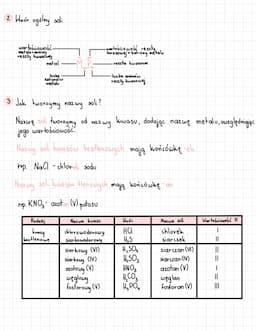 2 Wzór ogólny soli
wartościowość
metalu = liczba
reszty kwasowej
wartościowość reszty
kwasowej = liczba metalu
metal
M R
reszta kwasowa
liczba
atomów
metalu
liczba reszt
kwasowych
3 Jak tworzymy nazwy soli?
Nazwę soli tworzymy od nazwy kwasu, dodając nazwę metalu, uwzględniając
jego wartościowość
Nazwy soli kwasów beztlenowych mają końcówkę -ek
np. NaCl - chlorek sodu
Nazwy soli kwasów tlenowych mają końcówkę -an
np. KNO₃ - azotan (V) potasu
Podział Nazwa kwasu Wzór Nazwa soli Wartościowość R
kwasy
beztlenowe
chlorowodorowy HCl chlorek I
siarkowodorowy H₂S siarczek II
siarkowy (VI) H₂SO₄ siarczan (VI) II
siarkowy (IV) H₂SO₃ siarczan (IV) II
azotowy (V) HNO₃ azotan (V) I
węglowy H₂CO₃ węglan II
fosforowy (V) H₃PO₄ fosforan (V) III